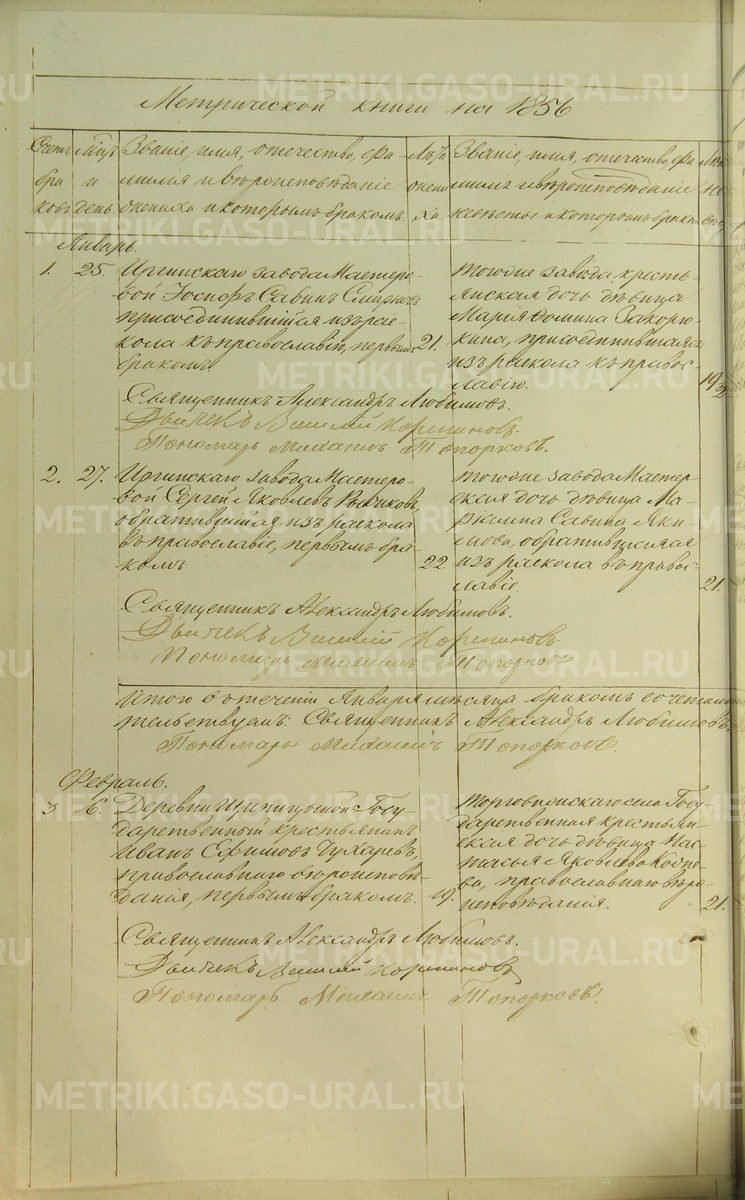 METRIKI.GASO-URAL.RU
Метрической книги на 1856
Счетъ бра ковъ
Мѣцъ и день
Званіе, имя, отечество, фа
милія и вѣроисповѣданіе
жениха и которымъ бракомъ.
Лѣта жени ха.
Званіе, имя, отечество, фа
милія и вѣроисповѣданіе
невѣсты и которымъ бракомъ
Январь.
1. 25. Иргинскаго завода Мастеро-
вой Іосифъ Савинъ
присоединившійся изъ рас-
кола къ православію, первымъ
бракомъ
21.
тогоже завода кресть-
янская дочь дѣвица
Марія Фомина
присоединившаяся
изъ раскола къ правос-
лавію.
19
Священникъ Александръ Любимовъ.
Дьячекъ
Пономарь Михаилъ Топорковъ.
2. 27. Иргинскаго завода Мастеро-
вой Сергей Яковлевъ
обратившійся изъ раскола
въ православіе, первымъ бра-
комъ
22.
тогоже завода Мастер-
ская дочь дѣвица Ма-
Савина Яки-
мова, обратившаяся
изъ раскола въ правос-
лавіе.
21.
Священникъ Александръ Любимовъ.
Дьячекъ
Пономарь Михаилъ Топорковъ
Итого въ теченіи Января мѣсяца бракомъ сочеталось
Священникъ Александръ Любимовъ.
Пономарь Михаилъ Топорковъ.
Февраль.
3 6. Деревни Госу-
дарственный крестьянинъ
Иванъ Ефимовъ Чухаревъ,
православнаго вѣроисповѣ-
данія, первымъ бракомъ.
19.
села Госу-
дарственная крестьян-
ская дочь дѣвица Нас-
тасья Яковлева
православнаго вѣро-
исповѣданія.
21.
Священникъ Александръ Любимовъ.
Дьячекъ
Пономарь Михаилъ Топорковъ.